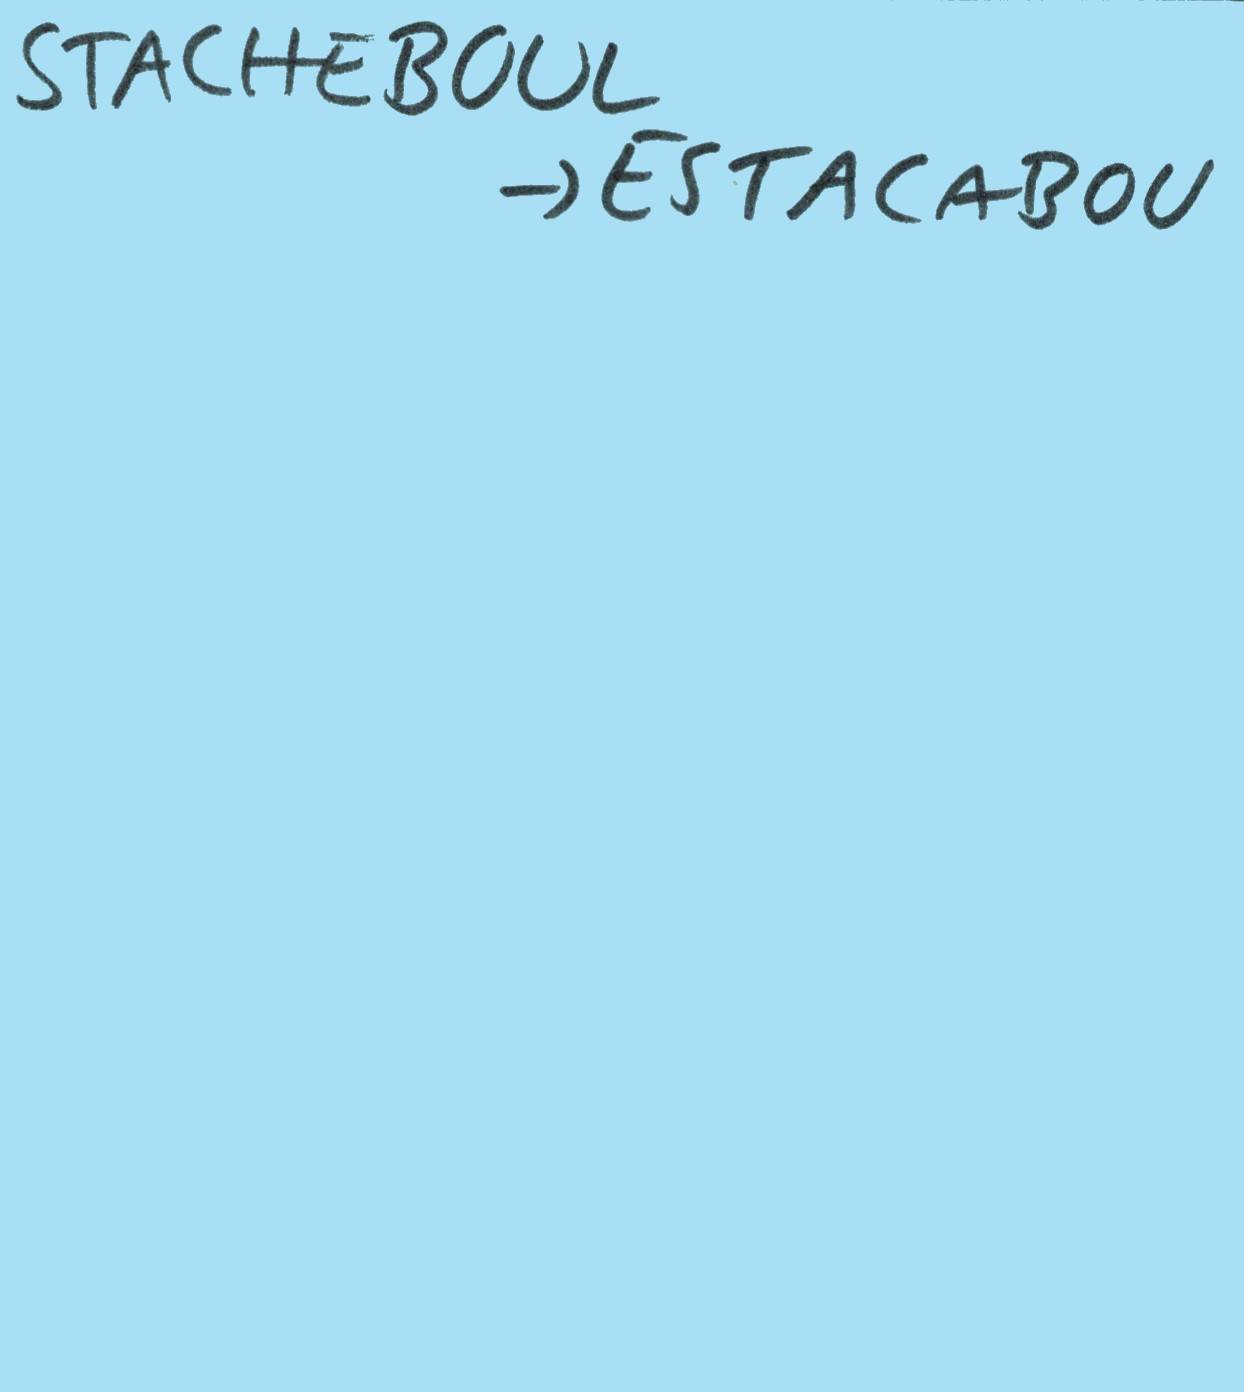 STACHEBOUL
→ ESTACABOU